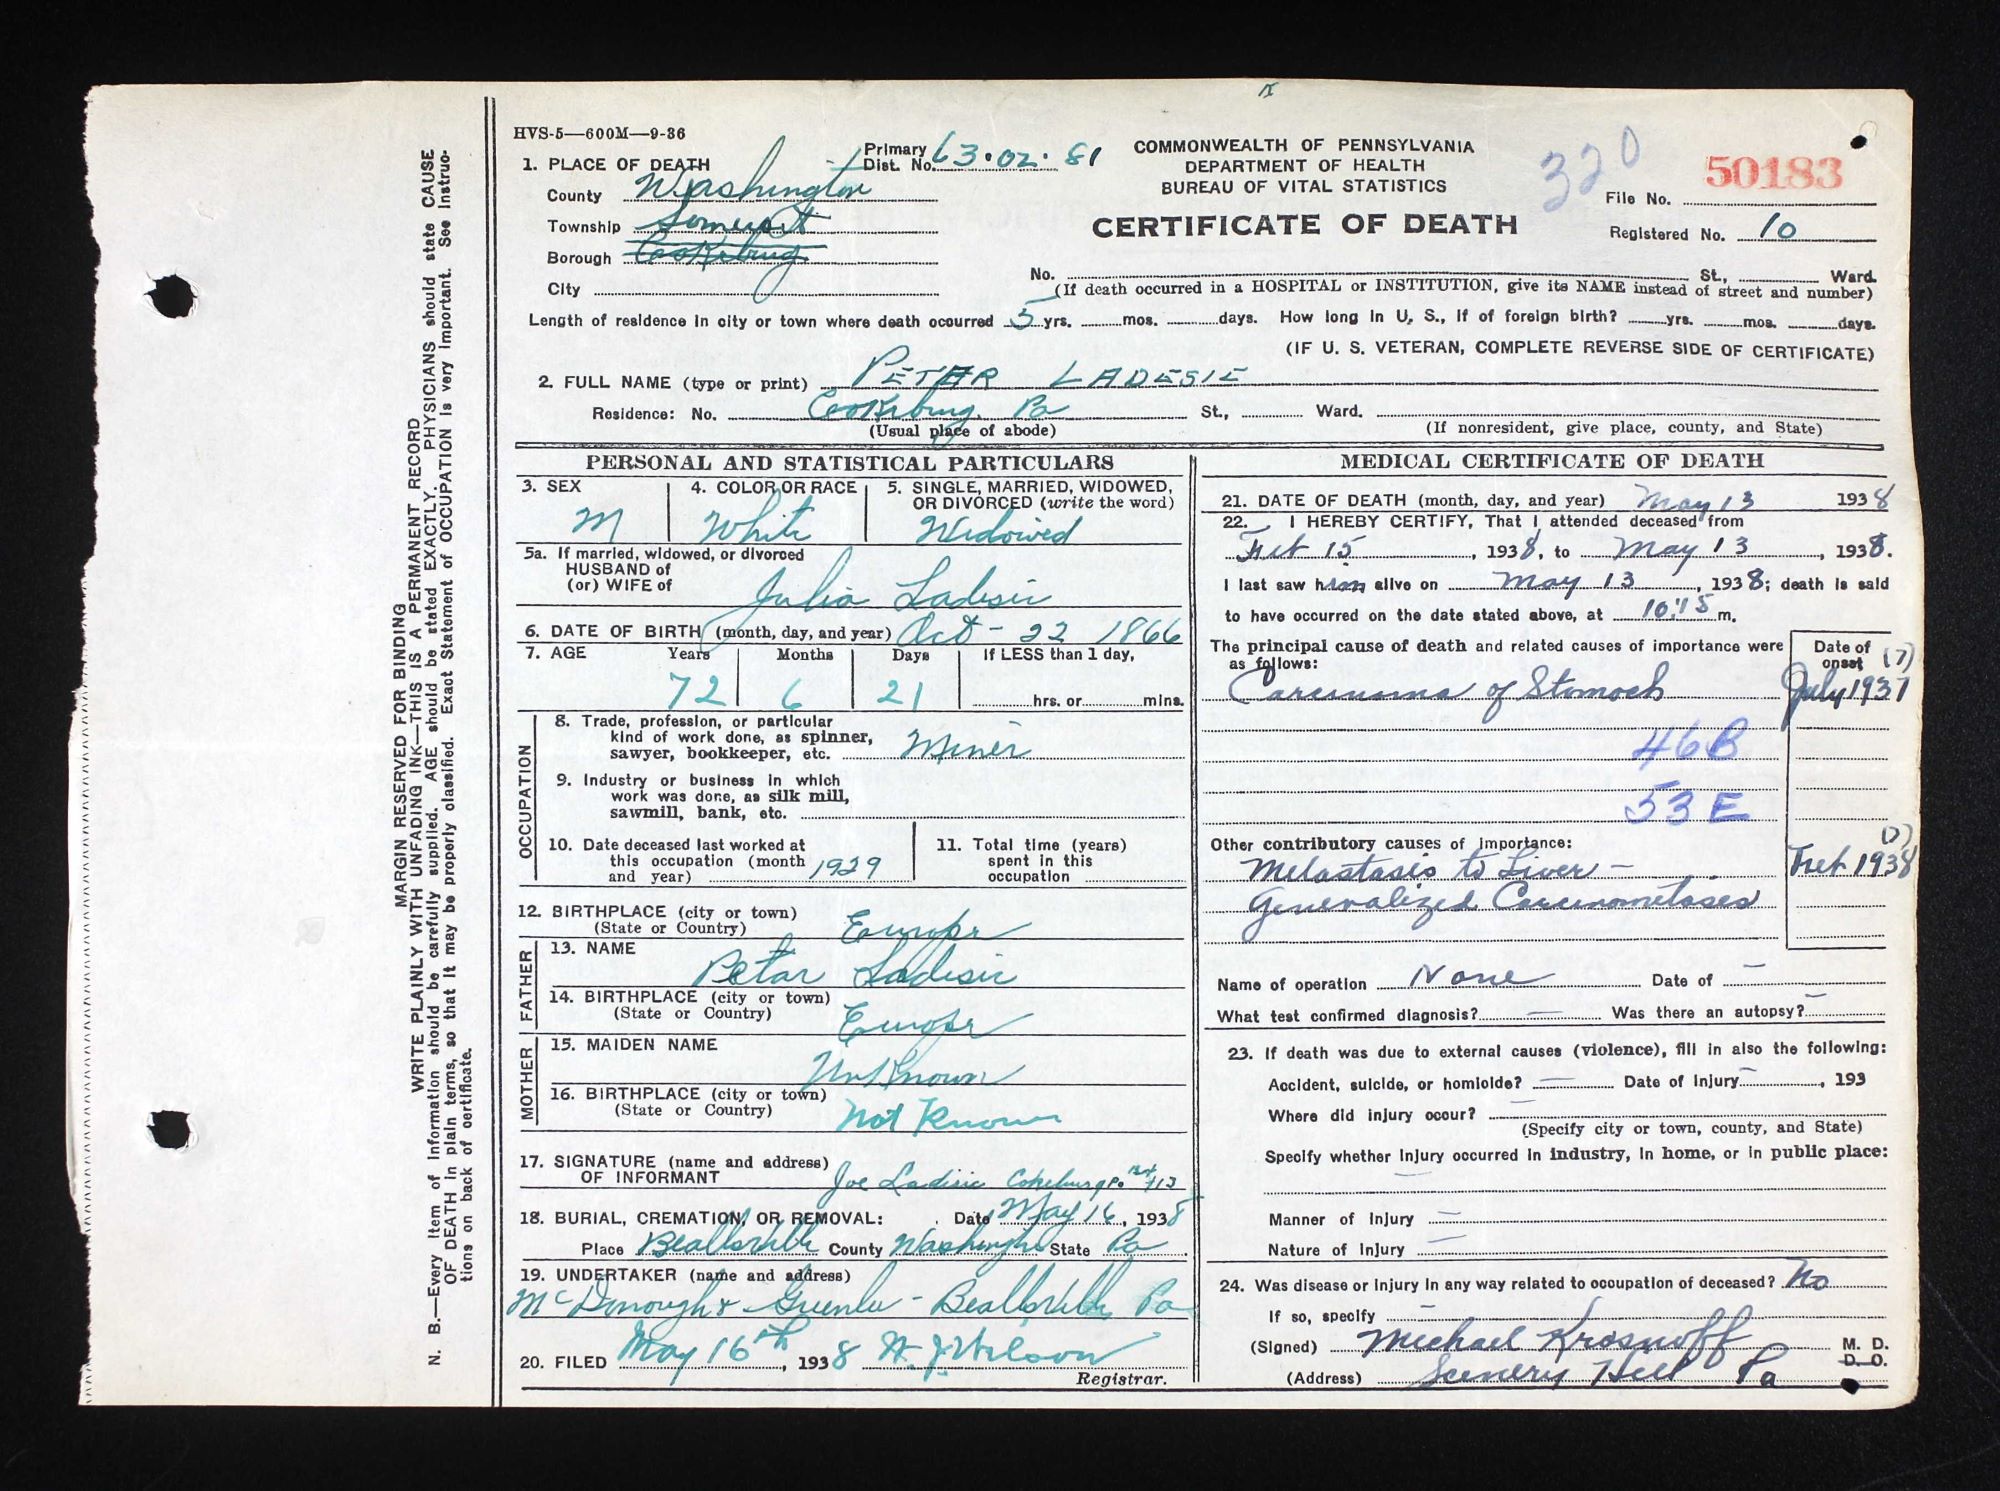 HVS-5—600M—9-36
1. PLACE OF DEATH
County Washington
Township Somerset
Borough Cokeburg
City
Primary Dist. No. 63.02.81
COMMONWEALTH OF PENNSYLVANIA
DEPARTMENT OF HEALTH
BUREAU OF VITAL STATISTICS
CERTIFICATE OF DEATH
320
50183
File No.
Registered No. 10
No. St., Ward.
(If death occurred in a HOSPITAL or INSTITUTION, give its NAME instead of street and number)
Length of residence in city or town where death occurred 5 yrs. mos. days. How long in U. S., if of foreign birth? yrs. mos. days.
(IF U. S. VETERAN, COMPLETE REVERSE SIDE OF CERTIFICATE)
2. FULL NAME (type or print) PETAR LADESIE
Residence: No. Cokeburg, Pa St., Ward.
(Usual place of abode) (If nonresident, give place, county, and State)
PERSONAL AND STATISTICAL PARTICULARS
3. SEX
M
4. COLOR OR RACE
White
5. SINGLE, MARRIED, WIDOWED, OR DIVORCED (write the word)
Widowed
5a. If married, widowed, or divorced
HUSBAND of
(or) WIFE of Julia Ladisic
6. DATE OF BIRTH (month, day, and year) Oct - 22 1866
7. AGE Years Months Days If LESS than 1 day,
72 6 21 hrs. or mins.
OCCUPATION
8. Trade, profession, or particular
kind of work done, as spinner,
sawyer, bookkeeper, etc. Miner
9. Industry or business in which
work was done, as silk mill,
sawmill, bank, etc.
10. Date deceased last worked at
this occupation (month
and year) 1929
11. Total time (years)
spent in this
occupation
12. BIRTHPLACE (city or town)
(State or Country) Europe
FATHER
13. NAME
Petar Ladisic
14. BIRTHPLACE (city or town)
(State or Country) Europe
MOTHER
15. MAIDEN NAME
Unknown
16. BIRTHPLACE (city or town)
(State or Country) Not Known
17. SIGNATURE (name and address)
OF INFORMANT Joe Ladisic Cokeburg Pa 113
18. BURIAL, CREMATION, OR REMOVAL: Date May 16, 1938
Place Beallsville County Washington State Pa
19. UNDERTAKER (name and address)
McDonough & Greenlee - Beallsville Pa
20. FILED May 16th, 1938 Wilson
Registrar.
MEDICAL CERTIFICATE OF DEATH
21. DATE OF DEATH (month, day, and year) May 13 1938
22. I HEREBY CERTIFY, That I attended deceased from
Feb 15, 1938, to May 13, 1938.
I last saw him alive on May 13, 1938; death is said
to have occurred on the date stated above, at 10:15 m.
The principal cause of death and related causes of importance were
as follows:
Date of onset (?)
Carcinoma of Stomach July 1937
46B
53E
Other contributory causes of importance:
(?)
Metastasis to Liver - Feb 1938
Generalized Carcinometases
Name of operation None Date of —
What test confirmed diagnosis? — Was there an autopsy? —
23. If death was due to external causes (violence), fill in also the following:
Accident, suicide, or homicide? — Date of injury , 193
Where did injury occur? —
(Specify city or town, county, and State)
Specify whether injury occurred in industry, in home, or in public place:
—
Manner of injury —
Nature of injury —
24. Was disease or injury in any way related to occupation of deceased? No
If so, specify —
(Signed) Michael Krosnoff M. D.
D. O.
(Address) Scenery Hill Pa
MARGIN RESERVED FOR BINDING
WRITE PLAINLY WITH UNFADING INK—THIS IS A PERMANENT RECORD
N. B.—Every item of information should be carefully supplied. AGE should be stated EXACTLY. PHYSICIANS should state CAUSE
OF DEATH in plain terms, so that it may be properly classified. Exact Statement of OCCUPATION is very important. See Instruc-
tions on back of certificate.